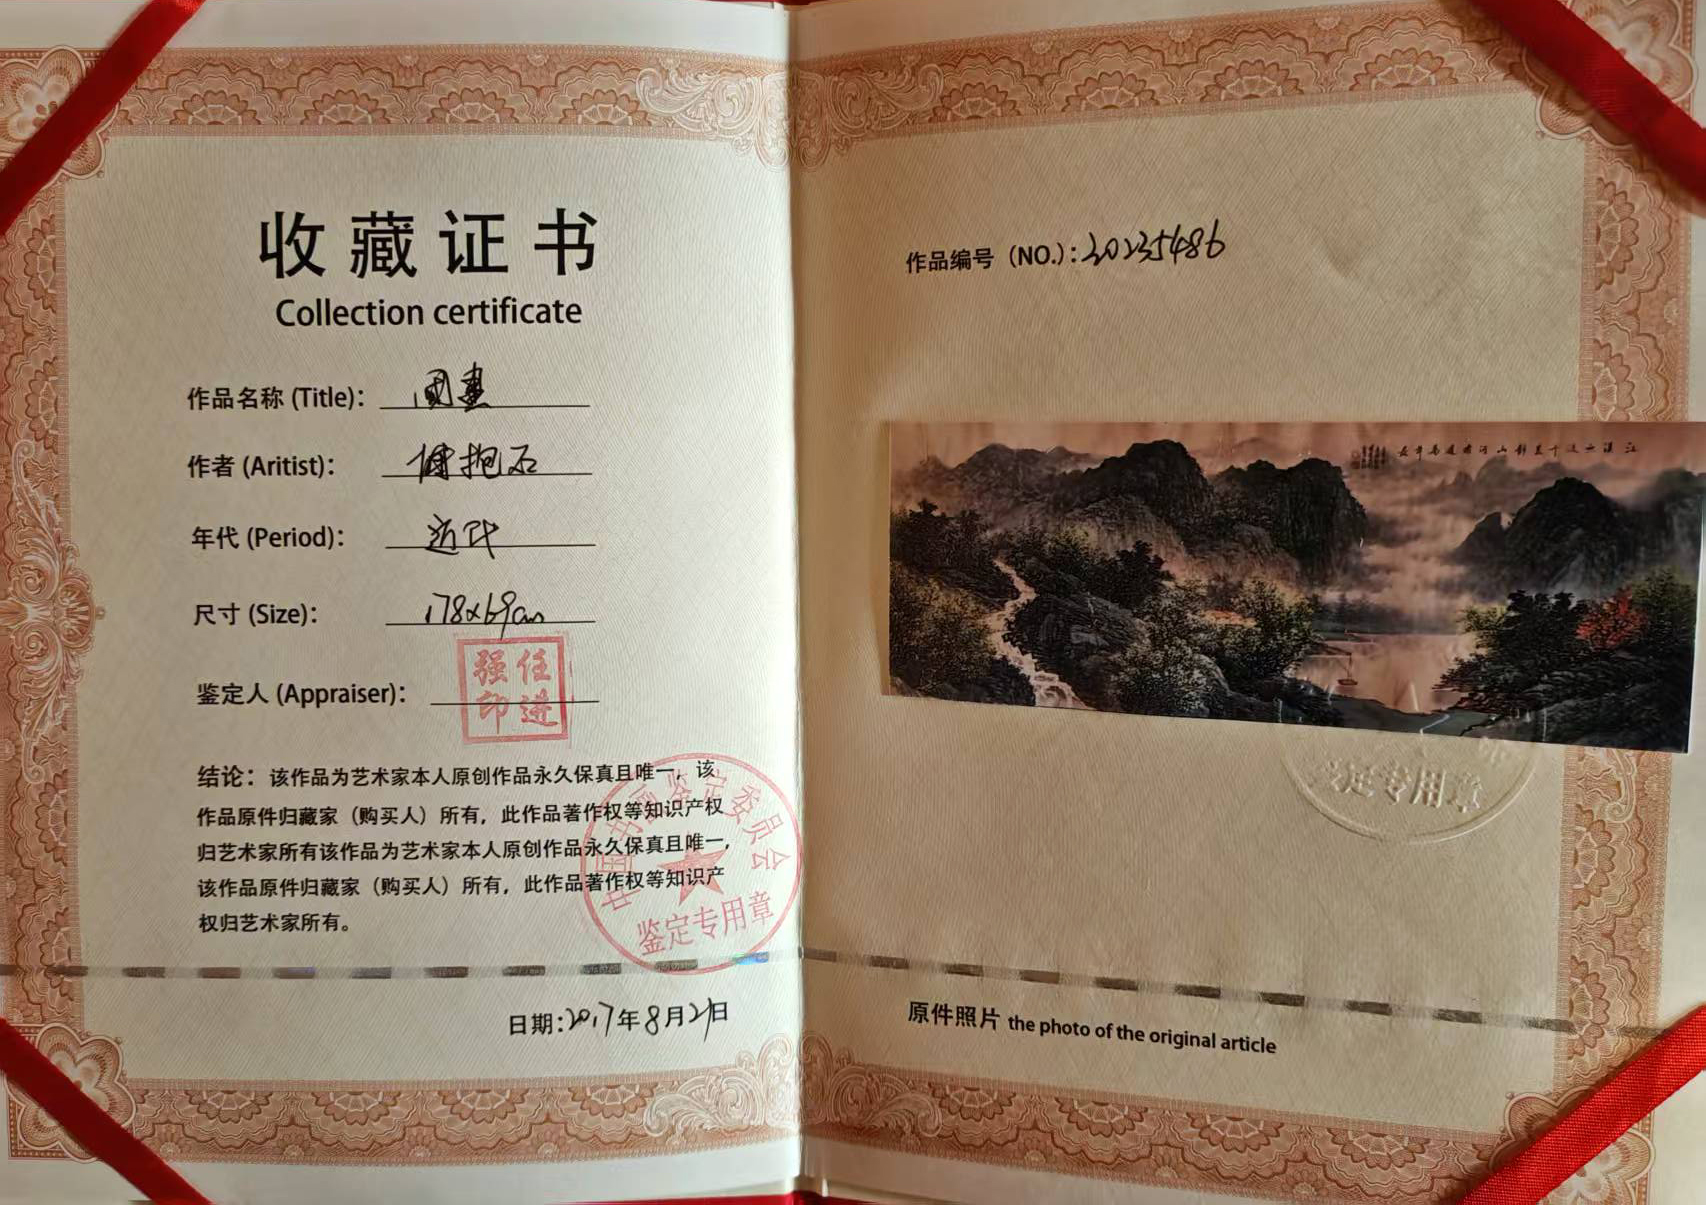 收藏证书
Collection certificate
作品名称 (Title): 国画
作者 (Aritist): 傅抱石
年代 (Period): 近代
尺寸 (Size): 178x69cm
鉴定人 (Appraiser):
任进
强印
结论：该作品为艺术家本人原创作品永久保真且唯一，该
作品原件归藏家（购买人）所有，此作品著作权等知识产权
归艺术家所有该作品为艺术家本人原创作品永久保真且唯一，
该作品原件归藏家（购买人）所有，此作品著作权等知识产
权归艺术家所有。
中国书画鉴定委员会
鉴定专用章
日期:2017年8月21日
作品编号（NO.）: 20235486
定专用章
原件照片 the photo of the original article